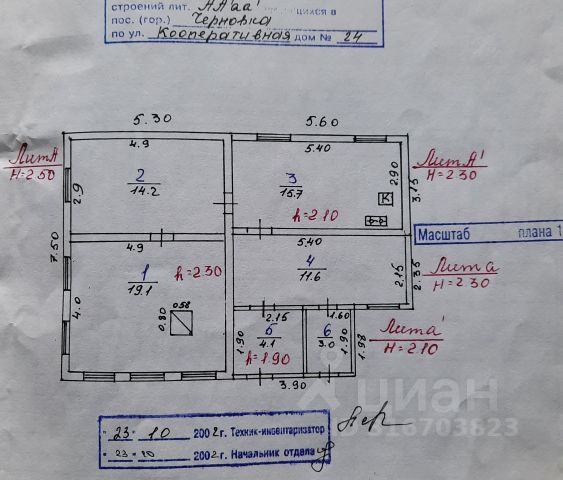 строений лит. ААаа'
пос. (гор.) Черновка
по ул. Кооперативная дом № 24
5.30 5.60
4.9 5.40
Лит А
H=2.50
2
14.2
2.9
3
15.7
h=2.10
2.90
К
3.15
Лит А'
H=2.30
7.50
Масштаб плана 1
4.9
1
19.1
h=2.30
4.0
0.58
0.80
5.40
4
11.6
2.15
2.35
Лит а
H=2.30
2.15
5
4.1
1.90
h=1.90
1.60
6
3.0
1.90
1.98
Лит а'
H=2.10
3.90
циан
"23" 10 2002 г. Техник-инвентаризатор
"23" 10 2002 г. Начальник отдела